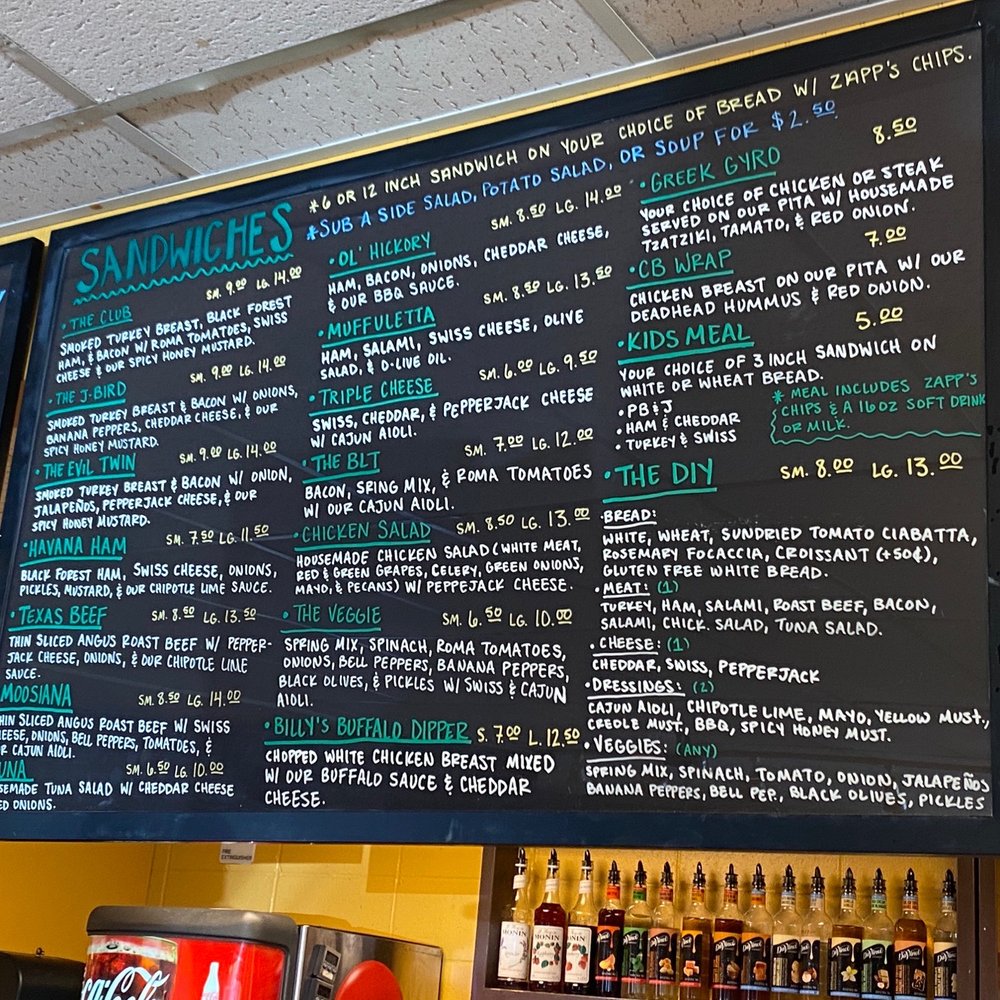 SANDWICHES
*6 OR 12 INCH SANDWICH ON YOUR CHOICE OF BREAD W/ ZAPP'S CHIPS.
*SUB A SIDE SALAD, POTATO SALAD, OR SOUP FOR $2.50
SM. 9.00 LG. 14.00
• THE CLUB
SMOKED TURKEY BREAST, BLACK FOREST
HAM, & BACON W/ ROMA TOMATOES, SWISS
CHEESE & OUR SPICY HONEY MUSTARD.
SM. 9.00 LG. 14.00
• THE J-BIRD
SMOKED TURKEY BREAST & BACON W/ ONIONS,
BANANA PEPPERS, CHEDDAR CHEESE, & OUR
SPICY HONEY MUSTARD.
• THE EVIL TWIN SM. 9.00 LG. 14.00
SMOKED TURKEY BREAST & BACON W/ ONION,
JALAPEÑOS, PEPPERJACK CHEESE, & OUR
SPICY HONEY MUSTARD.
• HAVANA HAM SM. 7.50 LG. 11.50
BLACK FOREST HAM, SWISS CHEESE, ONIONS,
PICKLES, MUSTARD, & OUR CHIPOTLE LIME SAUCE.
• TEXAS BEEF SM. 8.50 LG. 13.50
THIN SLICED ANGUS ROAST BEEF W/ PEPPER-
JACK CHEESE, ONIONS, & OUR CHIPOTLE LIME
SAUCE.
MOOSIANA SM. 8.50 LG. 14.00
HIN SLICED ANGUS ROAST BEEF W/ SWISS
HEESE, ONIONS, BELL PEPPERS, TOMATOES, &
R CAJUN AIOLI.
UNA SM. 6.50 LG. 10.00
SEMADE TUNA SALAD W/ CHEDDAR CHEESE
ED ONIONS.
SM. 8.50 LG. 14.00
• OL' HICKORY
HAM, BACON, ONIONS, CHEDDAR CHEESE,
& OUR BBQ SAUCE.
SM. 8.50 LG. 13.50
• MUFFULETTA
HAM, SALAMI, SWISS CHEESE, OLIVE
SALAD, & O-LIVE OIL.
SM. 6.00 LG. 9.50
• TRIPLE CHEESE
SWISS, CHEDDAR, & PEPPERJACK CHEESE
W/ CAJUN AIOLI.
SM. 7.00 LG. 12.00
• THE BLT
BACON, SRING MIX, & ROMA TOMATOES
W/ OUR CAJUN AIOLI.
• CHICKEN SALAD SM. 8.50 LG. 13.00
HOUSEMADE CHICKEN SALAD (WHITE MEAT,
RED & GREEN GRAPES, CELERY, GREEN ONIONS,
MAYO, & PECANS) W/ PEPPEJACK CHEESE.
• THE VEGGIE SM. 6.50 LG. 10.00
SPRING MIX, SPINACH, ROMA TOMATOES,
ONIONS, BELL PEPPERS, BANANA PEPPERS,
BLACK OLIVES, & PICKLES W/ SWISS & CAJUN
AIOLI.
• BILLY'S BUFFALO DIPPER S. 7.00 L. 12.50
CHOPPED WHITE CHICKEN BREAST MIXED
W/ OUR BUFFALO SAUCE & CHEDDAR
CHEESE.
8.50
• GREEK GYRO
YOUR CHOICE OF CHICKEN OR STEAK
SERVED ON OUR PITA W/ HOUSEMADE
TZATZIKI, TAMATO, & RED ONION.
7.00
• CB WRAP
CHICKEN BREAST ON OUR PITA W/ OUR
DEADHEAD HUMMUS & RED ONION.
5.00
• KIDS MEAL
YOUR CHOICE OF 3 INCH SANDWICH ON
WHITE OR WHEAT BREAD.
• PB & J
• HAM & CHEDDAR
• TURKEY & SWISS
* MEAL INCLUDES ZAPP'S
CHIPS & A 16OZ SOFT DRINK
OR MILK.
• THE DIY SM. 8.00 LG. 13.00
• BREAD:
WHITE, WHEAT, SUNDRIED TOMATO CIABATTA,
ROSEMARY FOCACCIA, CROISSANT (+50¢),
GLUTEN FREE WHITE BREAD.
• MEAT: (1)
TURKEY, HAM, SALAMI, ROAST BEEF, BACON,
SALAMI, CHICK. SALAD, TUNA SALAD.
• CHEESE: (1)
CHEDDAR, SWISS, PEPPERJACK
• DRESSINGS: (2)
CAJUN AIOLI, CHIPOTLE LIME, MAYO, YELLOW MUST.,
CREOLE MUST., BBQ, SPICY HONEY MUST.
• VEGGIES: (ANY)
SPRING MIX, SPINACH, TOMATO, ONION, JALAPEÑOS
BANANA PEPPERS, BELL PEP., BLACK OLIVES, PICKLES
FIRE
EXTINGUISHER
Coca-Cola
MONIN
MONIN
MONIN
DaVinci
DaVinci
DaVinci
DaVinci
DaVinci
DaVinci
DaVinci
DaVinci
DaVinci
DaVinci
DaVinci
DaVinci